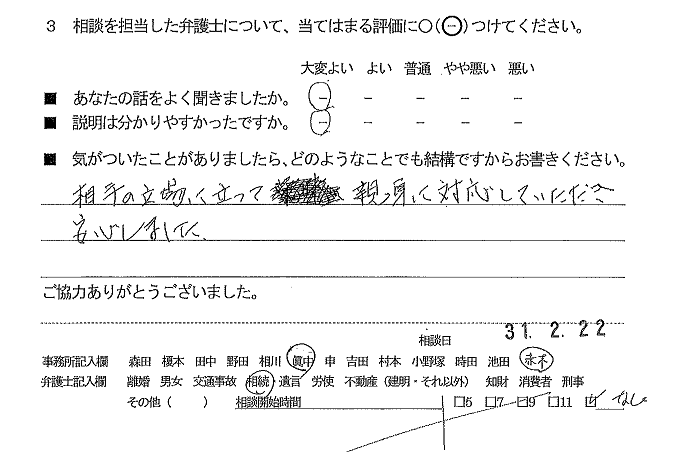 3 相談を担当した弁護士について、当てはまる評価に○(㊀)つけてください。
大変よい よい 普通 やや悪い 悪い
■ あなたの話をよく聞きましたか。 － － － － －
■ 説明は分かりやすかったですか。 － － － － －
■ 気がついたことがありましたら、どのようなことでも結構ですからお書きください。
相手の立場に立って 親っ身に対応していただき
安心しました。
ご協力ありがとうございました。
相談日 31. 2. 22
事務所記入欄 森田 榎本 田中 野田 相川 眞中 申 吉田 村本 小野塚 時田 池田 赤木
弁護士記入欄 離婚 男女 交通事故 相続・遺言 労使 不動産（建明・それ以外） 知財 消費者 刑事
その他（ ） 相談開始時間 □5 □7 □9 □11 ☑ なし